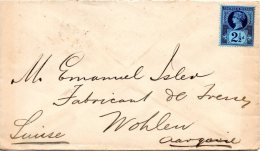 2½
M. Emanuel Isler
Fabricant de Tresses
Wohlen
Suisse
Aargovie